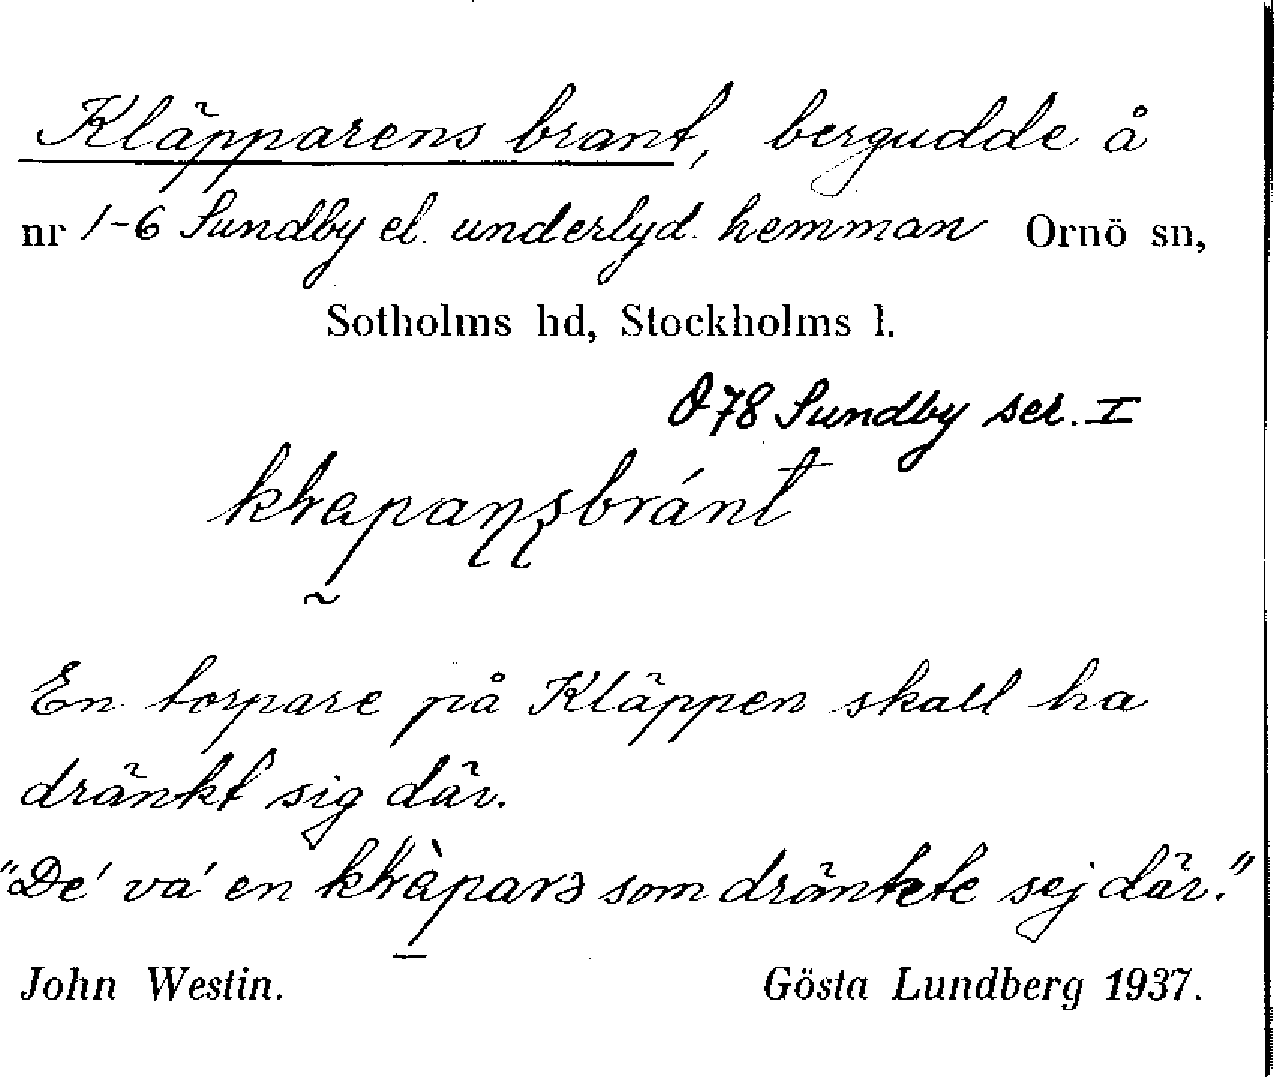 Kläpparens brant, bergudde å
nr 1-6 Sundby el. underlyd. hemman Ornö sn,
Sotholms hd, Stockholms l.
Ö78 Sundby ser. I
En torpare på Kläppen skall ha
dränkt sig där.
"De' va' en som dränkte sej där."
John Westin. Gösta Lundberg 1937.